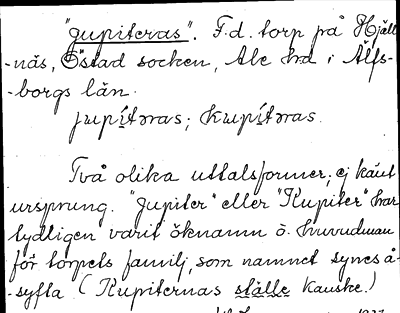 "Jupiteras". F.d. torp på Hjäll-
-näs, Östad socken, Ale hd i Älfs-
-borgs län.
jupítəras; kupítəras.
Två olika uttalsformer; ej känt
ursprung. "Jupiter" eller "Kupiter" har
tydligen varit öknamn å huvudman
för torpets familj, som namnet synes å-
-syfta (Kupiternas ställe kanske.)